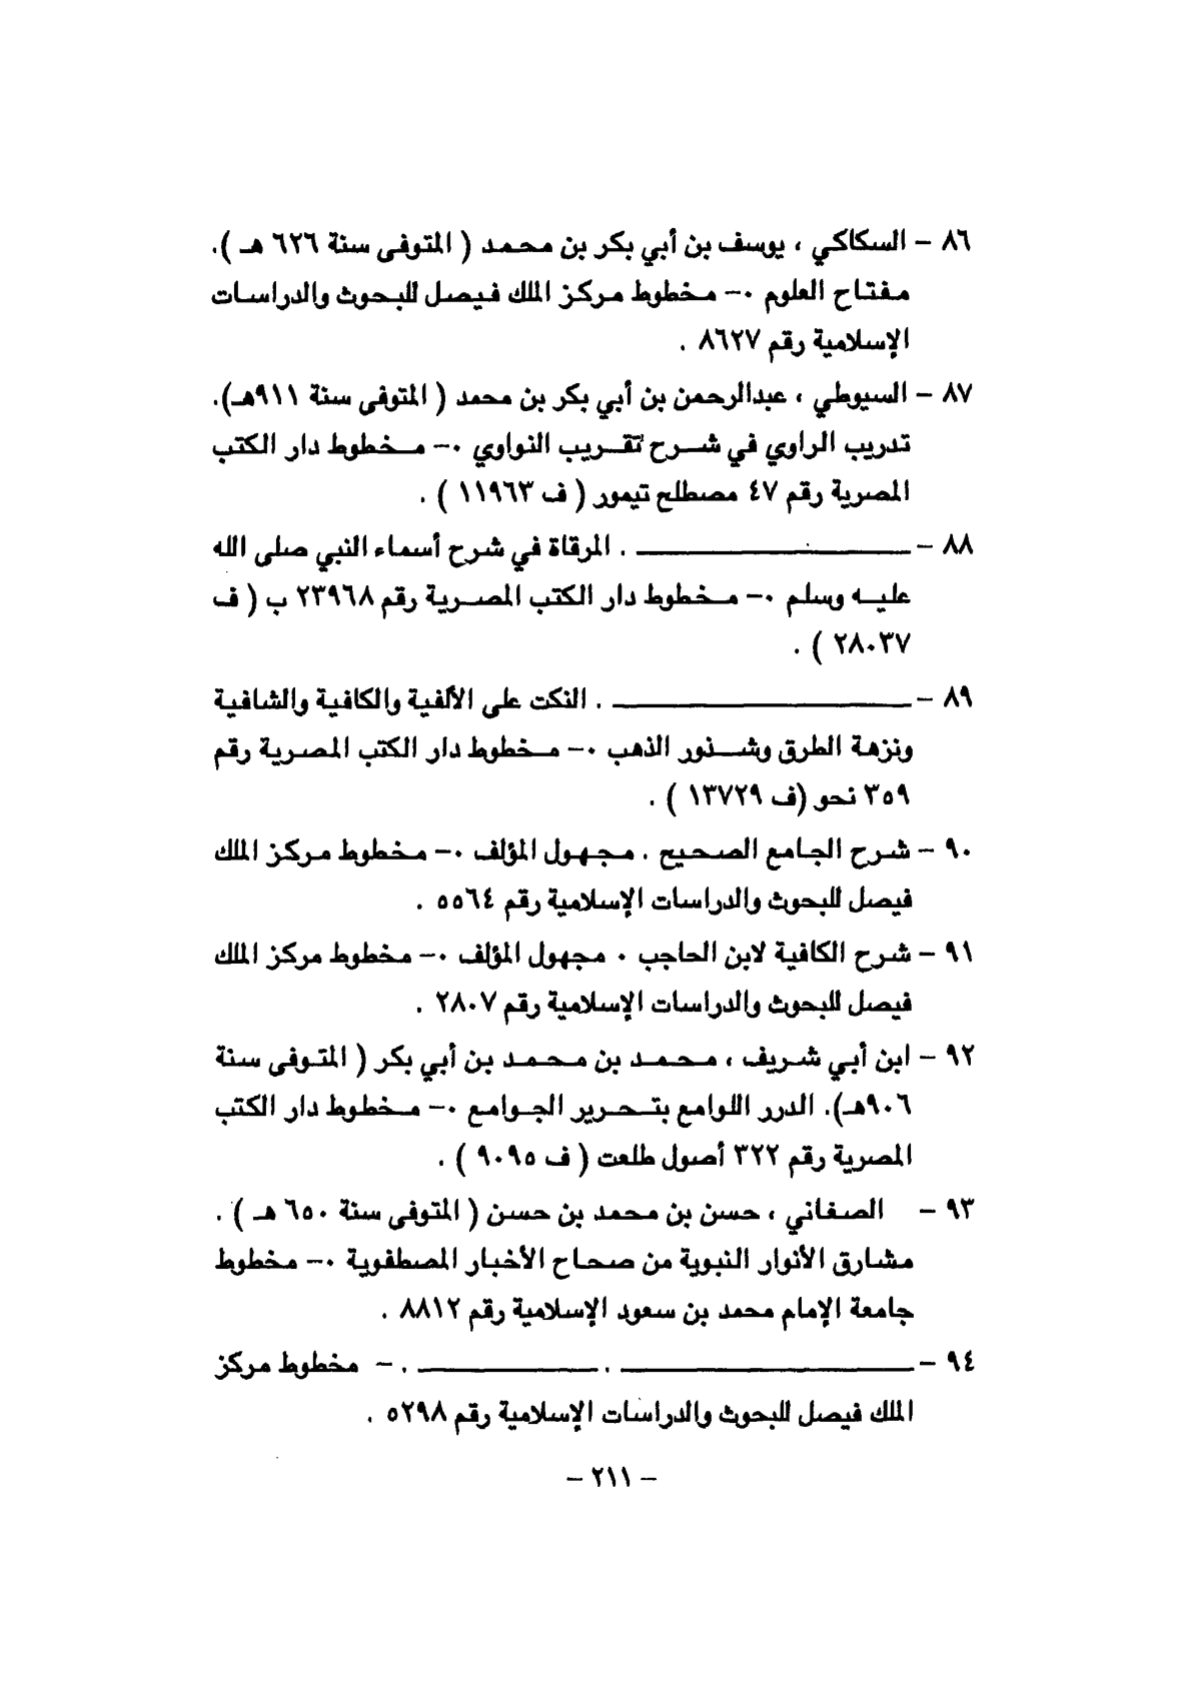 ٨٦ – السكاكي ، يوسف بن أبي بكر بن محمد ( المتوفى سنة ٦٢٦ هـ ).
مفتاح العلوم ٠– مخطوط مركز الملك فيصل للبحوث والدراسات
الإسلامية رقم ٨٦٢٧ .
٨٧ – السيوطي ، عبدالرحمن بن أبي بكر بن محمد ( المتوفى سنة ٩١١هـ).
تدريب الراوي في شرح تقريب النواوي ٠– مخطوط دار الكتب
المصرية رقم ٤٧ مصطلح تيمور ( ف ١١٩٦٣ ) .
٨٨ – ــــــــــــــــــــ . المرقاة في شرح أسماء النبي صلى الله
عليه وسلم ٠– مخطوط دار الكتب المصرية رقم ٢٣٩٦٨ ب ( ف
٢٨٠٣٧ ) .
٨٩ – ــــــــــــــــــــ . النكت على الألفية والكافية والشافية
ونزهة الطرق وشذور الذهب ٠– مخطوط دار الكتب المصرية رقم
٣٥٩ نحو (ف ١٣٧٢٩ ) .
٩٠ – شرح الجامع الصحيح . مجهول المؤلف ٠– مخطوط مركز الملك
فيصل للبحوث والدراسات الإسلامية رقم ٥٥٦٤ .
٩١ – شرح الكافية لابن الحاجب ٠ مجهول المؤلف ٠– مخطوط مركز الملك
فيصل للبحوث والدراسات الإسلامية رقم ٢٨٠٧ .
٩٢ – ابن أبي شريف ، محمد بن محمد بن أبي بكر ( المتوفى سنة
٩٠٦هـ). الدرر اللوامع بتحرير الجوامع ٠– مخطوط دار الكتب
المصرية رقم ٣٢٢ أصول طلعت ( ف ٩٠٩٥ ) .
٩٣ – الصغاني ، حسن بن محمد بن حسن ( المتوفى سنة ٦٥٠ هـ ) .
مشارق الأنوار النبوية من صحاح الأخبار المصطفوية ٠– مخطوط
جامعة الإمام محمد بن سعود الإسلامية رقم ٨٨١٢ .
٩٤ – ــــــــــــــــــــ . ــــــــــــــ . – مخطوط مركز
الملك فيصل للبحوث والدراسات الإسلامية رقم ٥٢٩٨ .
– ٢١١ –